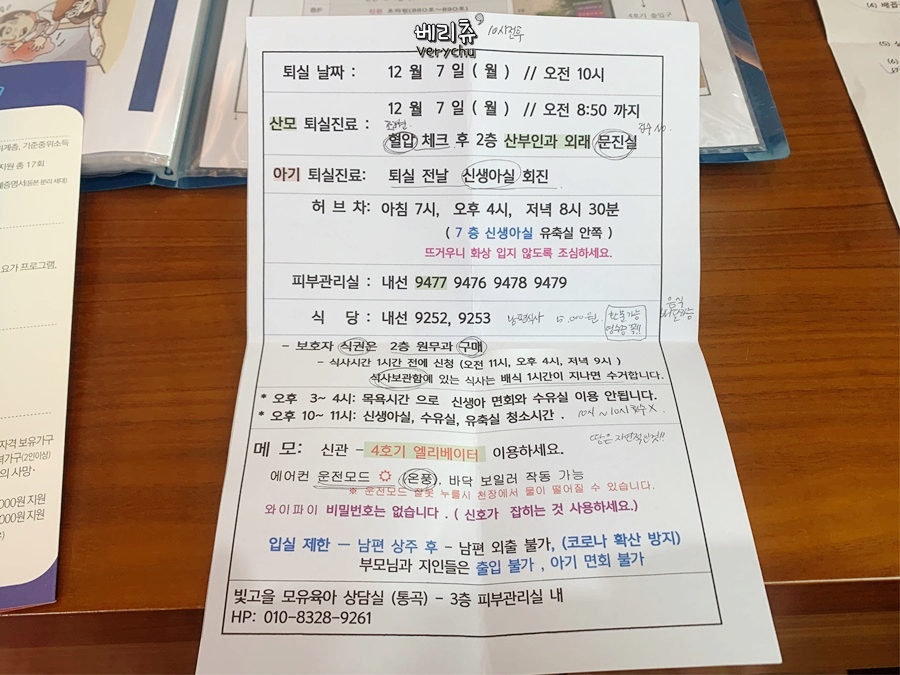 베리츄
verychu
10시전후
퇴실 날짜 : 12 월 7 일 ( 월 ) // 오전 10시
12 월 7 일 ( 월 ) // 오전 8:50 까지
산모 퇴실진료 : 혈압 체크 후 2층 산부인과 외래 문진실
접수 NO.
아기 퇴실진료: 퇴실 전날 신생아실 회진
허 브 차: 아침 7시, 오후 4시, 저녁 8시 30분
( 7 층 신생아실 유축실 안쪽 )
뜨거우니 화상 입지 않도록 조심하세요.
피부관리실 : 내선 9477 9476 9478 9479
식 당 : 내선 9252, 9253
남편식사
환불가능
영수증 꼭!!
음식
- 보호자 식권은 2층 원무과 구매
- 식사시간 1시간 전에 신청 (오전 11시, 오후 4시, 저녁 9시 )
식사보관함에 있는 식사는 배식 1시간이 지나면 수거합니다.
* 오후 3~ 4시: 목욕시간 으로 신생아 면회와 수유실 이용 안됩니다.
* 오후 10~ 11시: 신생아실, 수유실, 유축실 청소시간 .
땀은 자연적인것!!
메 모: 신관 - 4호기 엘리베이터 이용하세요.
에어컨 운전모드 (온풍), 바닥 보일러 작동 가능
※ 운전모드 잘못 누를시 천장에서 물이 떨어질 수 있습니다.
와이파이 비밀번호는 없습니다 . ( 신호가 잡히는 것 사용하세요.)
입실 제한 - 남편 상주 후 - 남편 외출 불가, (코로나 확산 방지)
부모님과 지인들은 출입 불가 , 아기 면회 불가
빛고을 모유육아 상담실 (통곡) - 3층 피부관리실 내
HP: 010-8328-9261
기준중위소득
지원 총 17회
요가 프로그램,
자격 보유가구
의 사망·
000원 지원
000원 지원